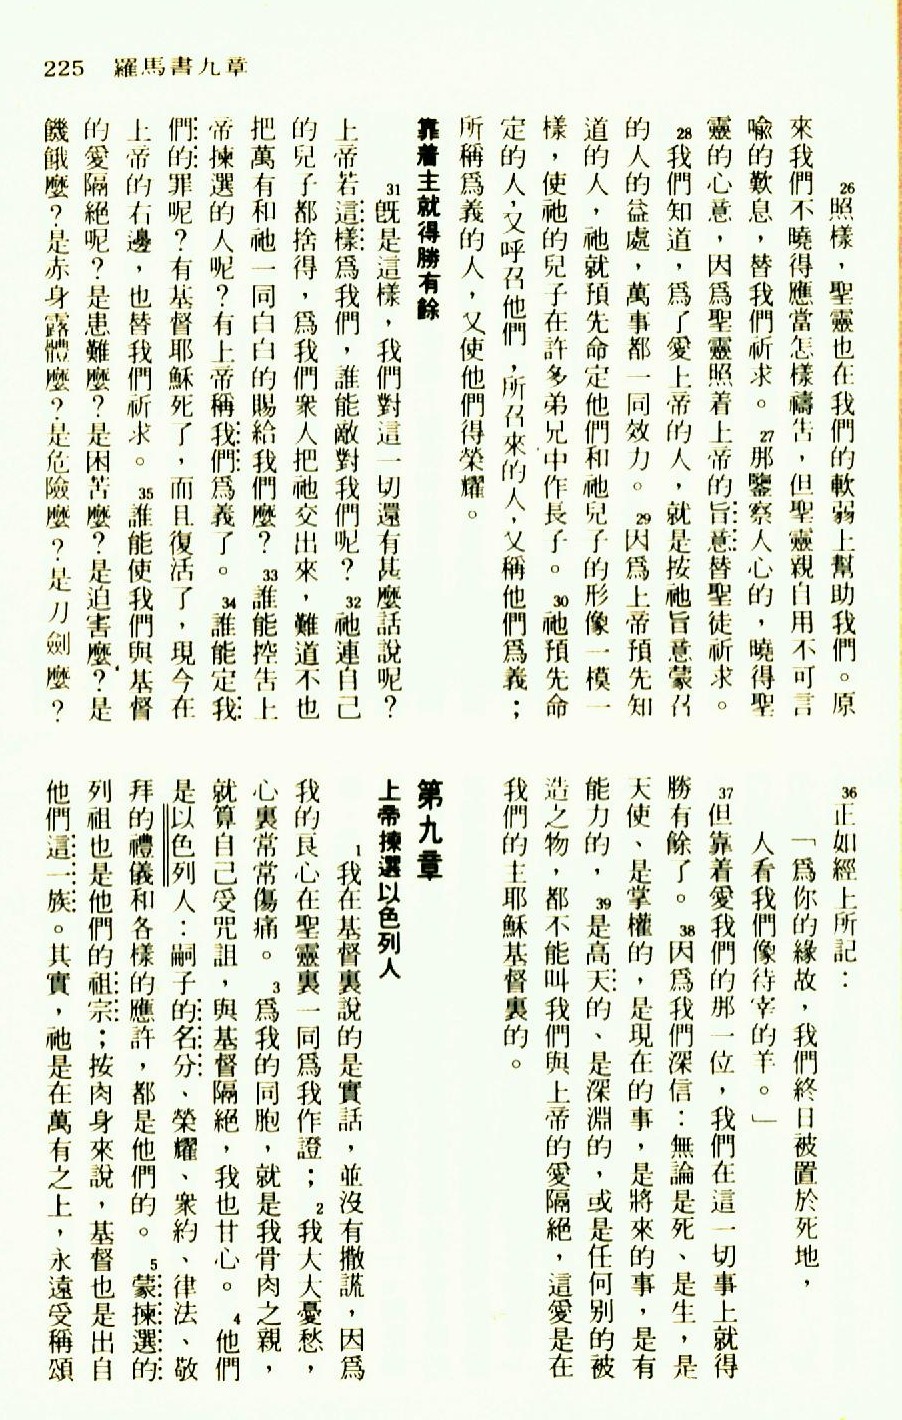 225 羅馬書九章
26照樣，聖靈也在我們的軟弱上幫助我們。原
來我們不曉得應當怎樣禱吿，但聖靈親自用不可言
喩的歎息，替我們祈求。27那鑒察人心的，曉得聖
靈的心意，因爲聖靈照着上帝的旨意替聖徒祈求。
28我們知道，爲了愛上帝的人，就是按祂旨意蒙召
的人的益處，萬事都一同效力。29因爲上帝預先知
道的人，祂就預先命定他們和祂兒子的形像一模一
樣，使祂的兒子在許多弟兄中作長子。30祂預先命
定的人，又呼召他們，所召來的人，又稱他們爲義；
所稱爲義的人，又使他們得榮耀。
靠着主就得勝有餘
31旣是這樣，我們對這一切還有甚麼話說呢？
上帝若這樣爲我們，誰能敵對我們呢？32祂連自己
的兒子都捨得，爲我們衆人把祂交出來，難道不也
把萬有和祂一同白白的賜給我們麼？33誰能控吿上
帝揀選的人呢？有上帝稱我們爲義了。34誰能定我
們的罪呢？有基督耶穌死了，而且復活了，現今在
上帝的右邊，也替我們祈求。35誰能使我們與基督
的愛隔絕呢？是患難麼？是困苦麼？是迫害麼？是
饑餓麼？是赤身露體麼？是危險麼？是刀劍麼？
36正如經上所記：
「爲你的緣故，我們終日被置於死地，
人看我們像待宰的羊。」
37但靠着愛我們的那一位，我們在這一切事上就得
勝有餘了。38因爲我們深信：無論是死、是生，是
天使、是掌權的，是現在的事，是將來的事，是有
能力的，39是高天的、是深淵的，或是任何别的被
造之物，都不能叫我們與上帝的愛隔絕，這愛是在
我們的主耶穌基督裏的。
第九章
上帝揀選以色列人
1我在基督裏說的是實話，並沒有撒謊，因爲
我的良心在聖靈裏一同爲我作證；2我大大憂愁，
心裏常常傷痛。3爲我的同胞，就是我骨肉之親，
就算自己受咒詛，與基督隔絕，我也甘心。4他們
是以色列人：嗣子的名分、榮耀、衆約、律法、敬
拜的禮儀和各樣的應許，都是他們的。5蒙揀選的
列祖也是他們的祖宗；按肉身來說，基督也是出自
他們這一族。其實，祂是在萬有之上，永遠受稱頌